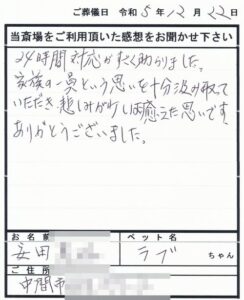 ご葬儀日 令和5年12月22日
当斎場をご利用頂いた感想をお聞かせ下さい
24時間対応がすごく助かりました。
家族の一員という思いを十分汲み取って
いただき悲しみが少し癒えた思いです
ありがとうございました。
お名前
安田
ペット名
ラブ ちゃん
ご住所
中間市